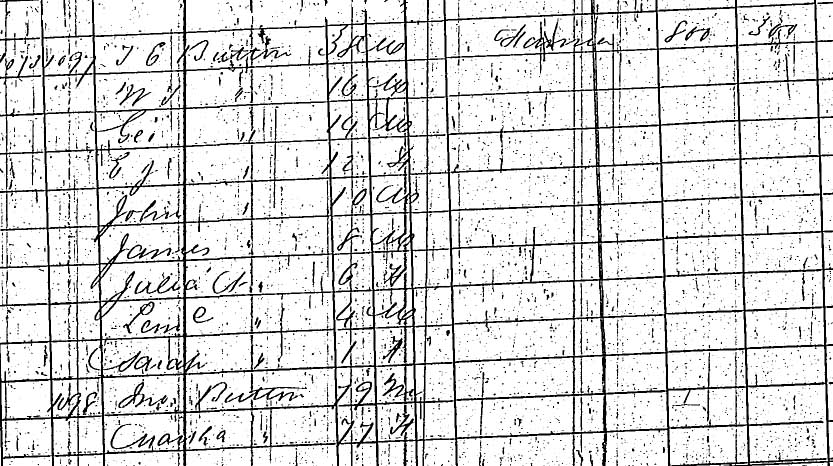 1013 1097 J G Button 38 M Farmer 800 300
W J " 16 M
Geo " 14 M
E J " 12 F
John " 10 M
James " 8 M
Julia A " 6 F
Lem C " 4 M
Sarah " 1 F
1098 Jno. Button 79 M
Martha " 77 F